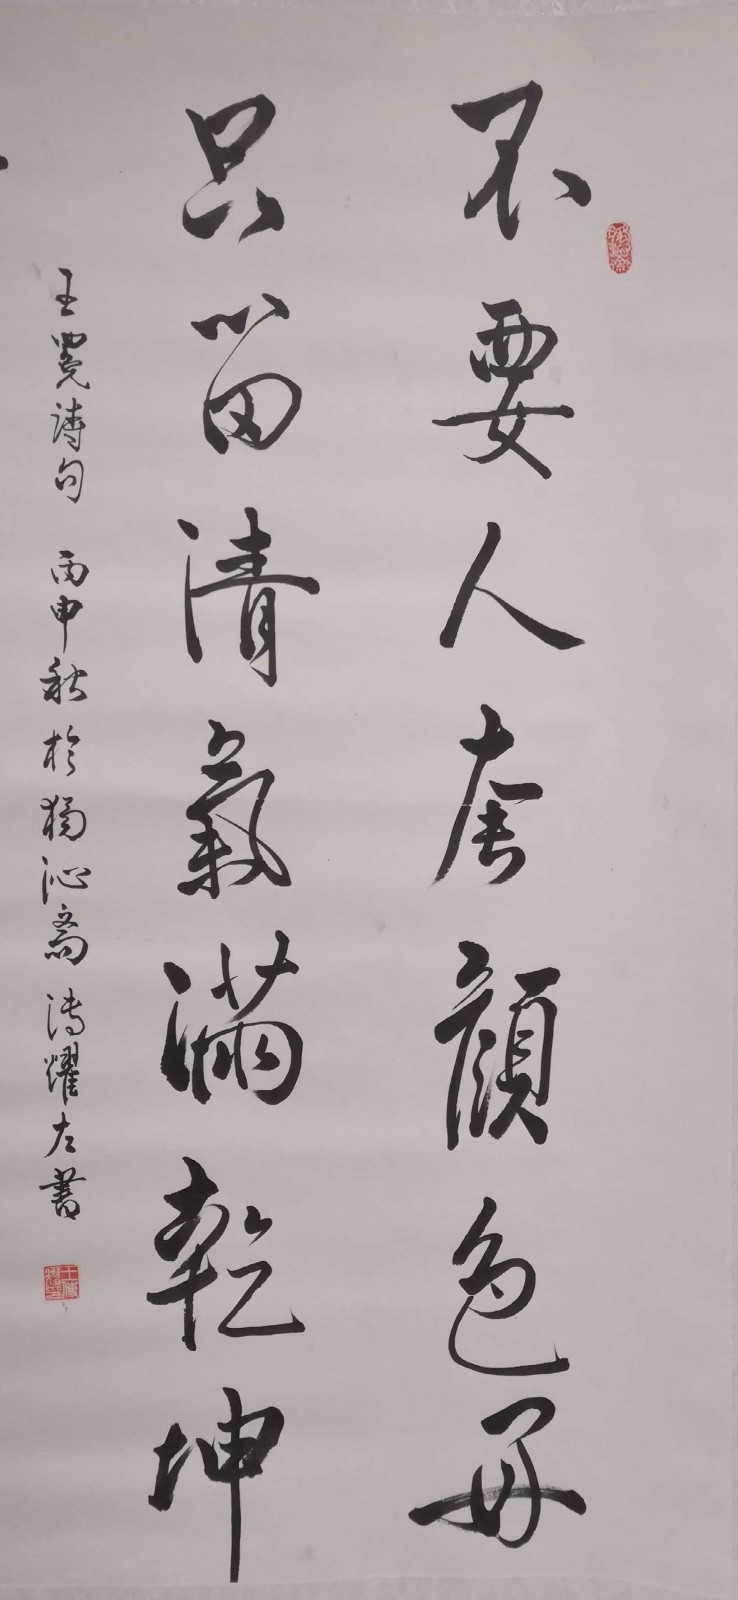 不要人夸顏色好
只留清氣滿乾坤
王冕詩句 丙申秋於獨沁齋 耀左書